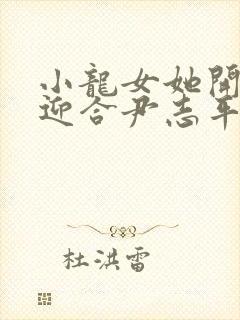 小龍女她開
迎合尹志平
杜洪雷